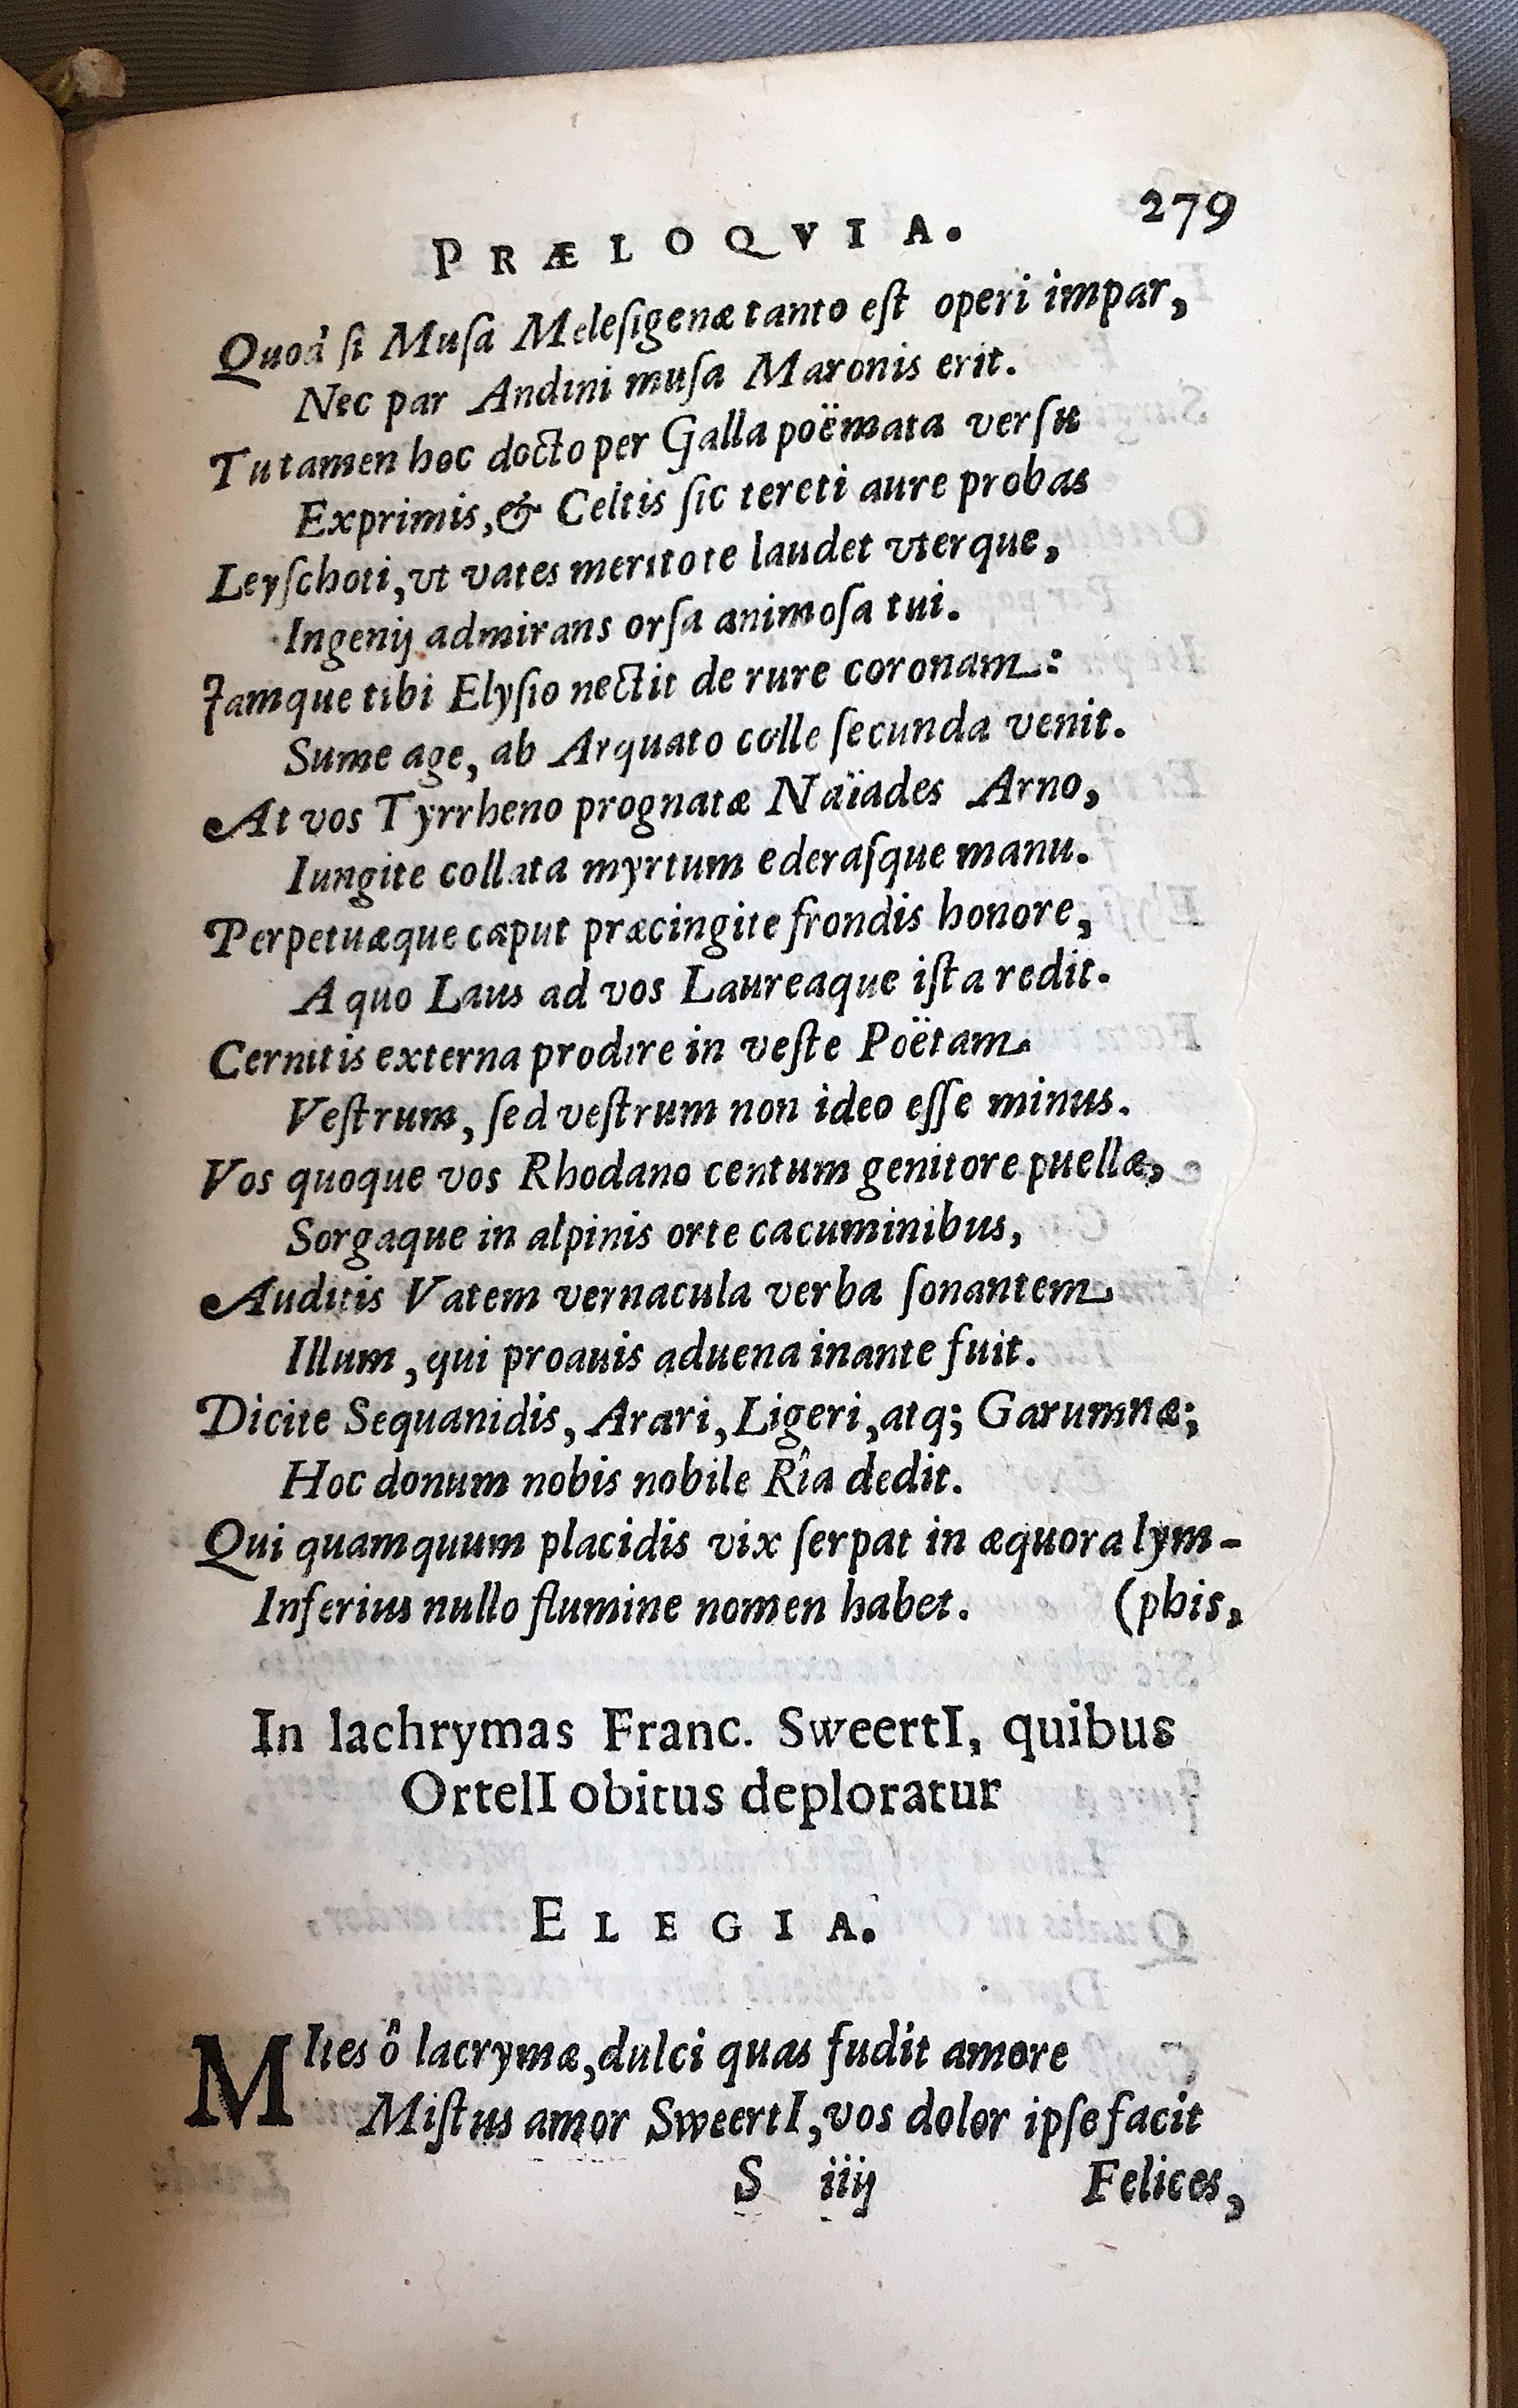 279
PRÆLOQVIA.
Quod si Musa Melesigenæ tanto est operi impar,
Nec par Andini musa Maronis erit.
Tu tamen hoc docto per Galla poëmata versu
Exprimis, & Celtis sic tereti aure probas
Leyschoti, vt vates merito te laudet vterque,
Ingenij admirans orsa animosa tui.
Jamque tibi Elysio nectit de rure coronam:
Sume age, ab Arquato colle secunda venit.
At vos Tyrrheno prognatæ Naïades Arno,
Iungite collata myrtum ederasque manu.
Perpetuæque caput præcingite frondis honore,
A quo Laus ad vos Laureaque ista redit.
Cernitis externa prodire in veste Poëtam
Vestrum, sed vestrum non ideo esse minus.
Vos quoque vos Rhodano centum genitore puellæ,
Sorgaque in alpinis orte cacuminibus,
Auditis Vatem vernacula verba sonantem
Illum, qui proauis aduena in ante fuit.
Dicite Sequanidis, Arari, Ligeri, atq; Garumnæ;
Hoc donum nobis nobile Rîa dedit.
Qui quamquum placidis vix serpat in æquora lym-
Inferius nullo flumine nomen habet. (phis,
In lachrymas Franc. SweertI, quibus
OrtelI obitus deploratur
ELEGIA.
MItes ô lacrymæ, dulci quas fudit amore
Mistus amor SweertI, vos dolor ipse facit
S iiij Felices,